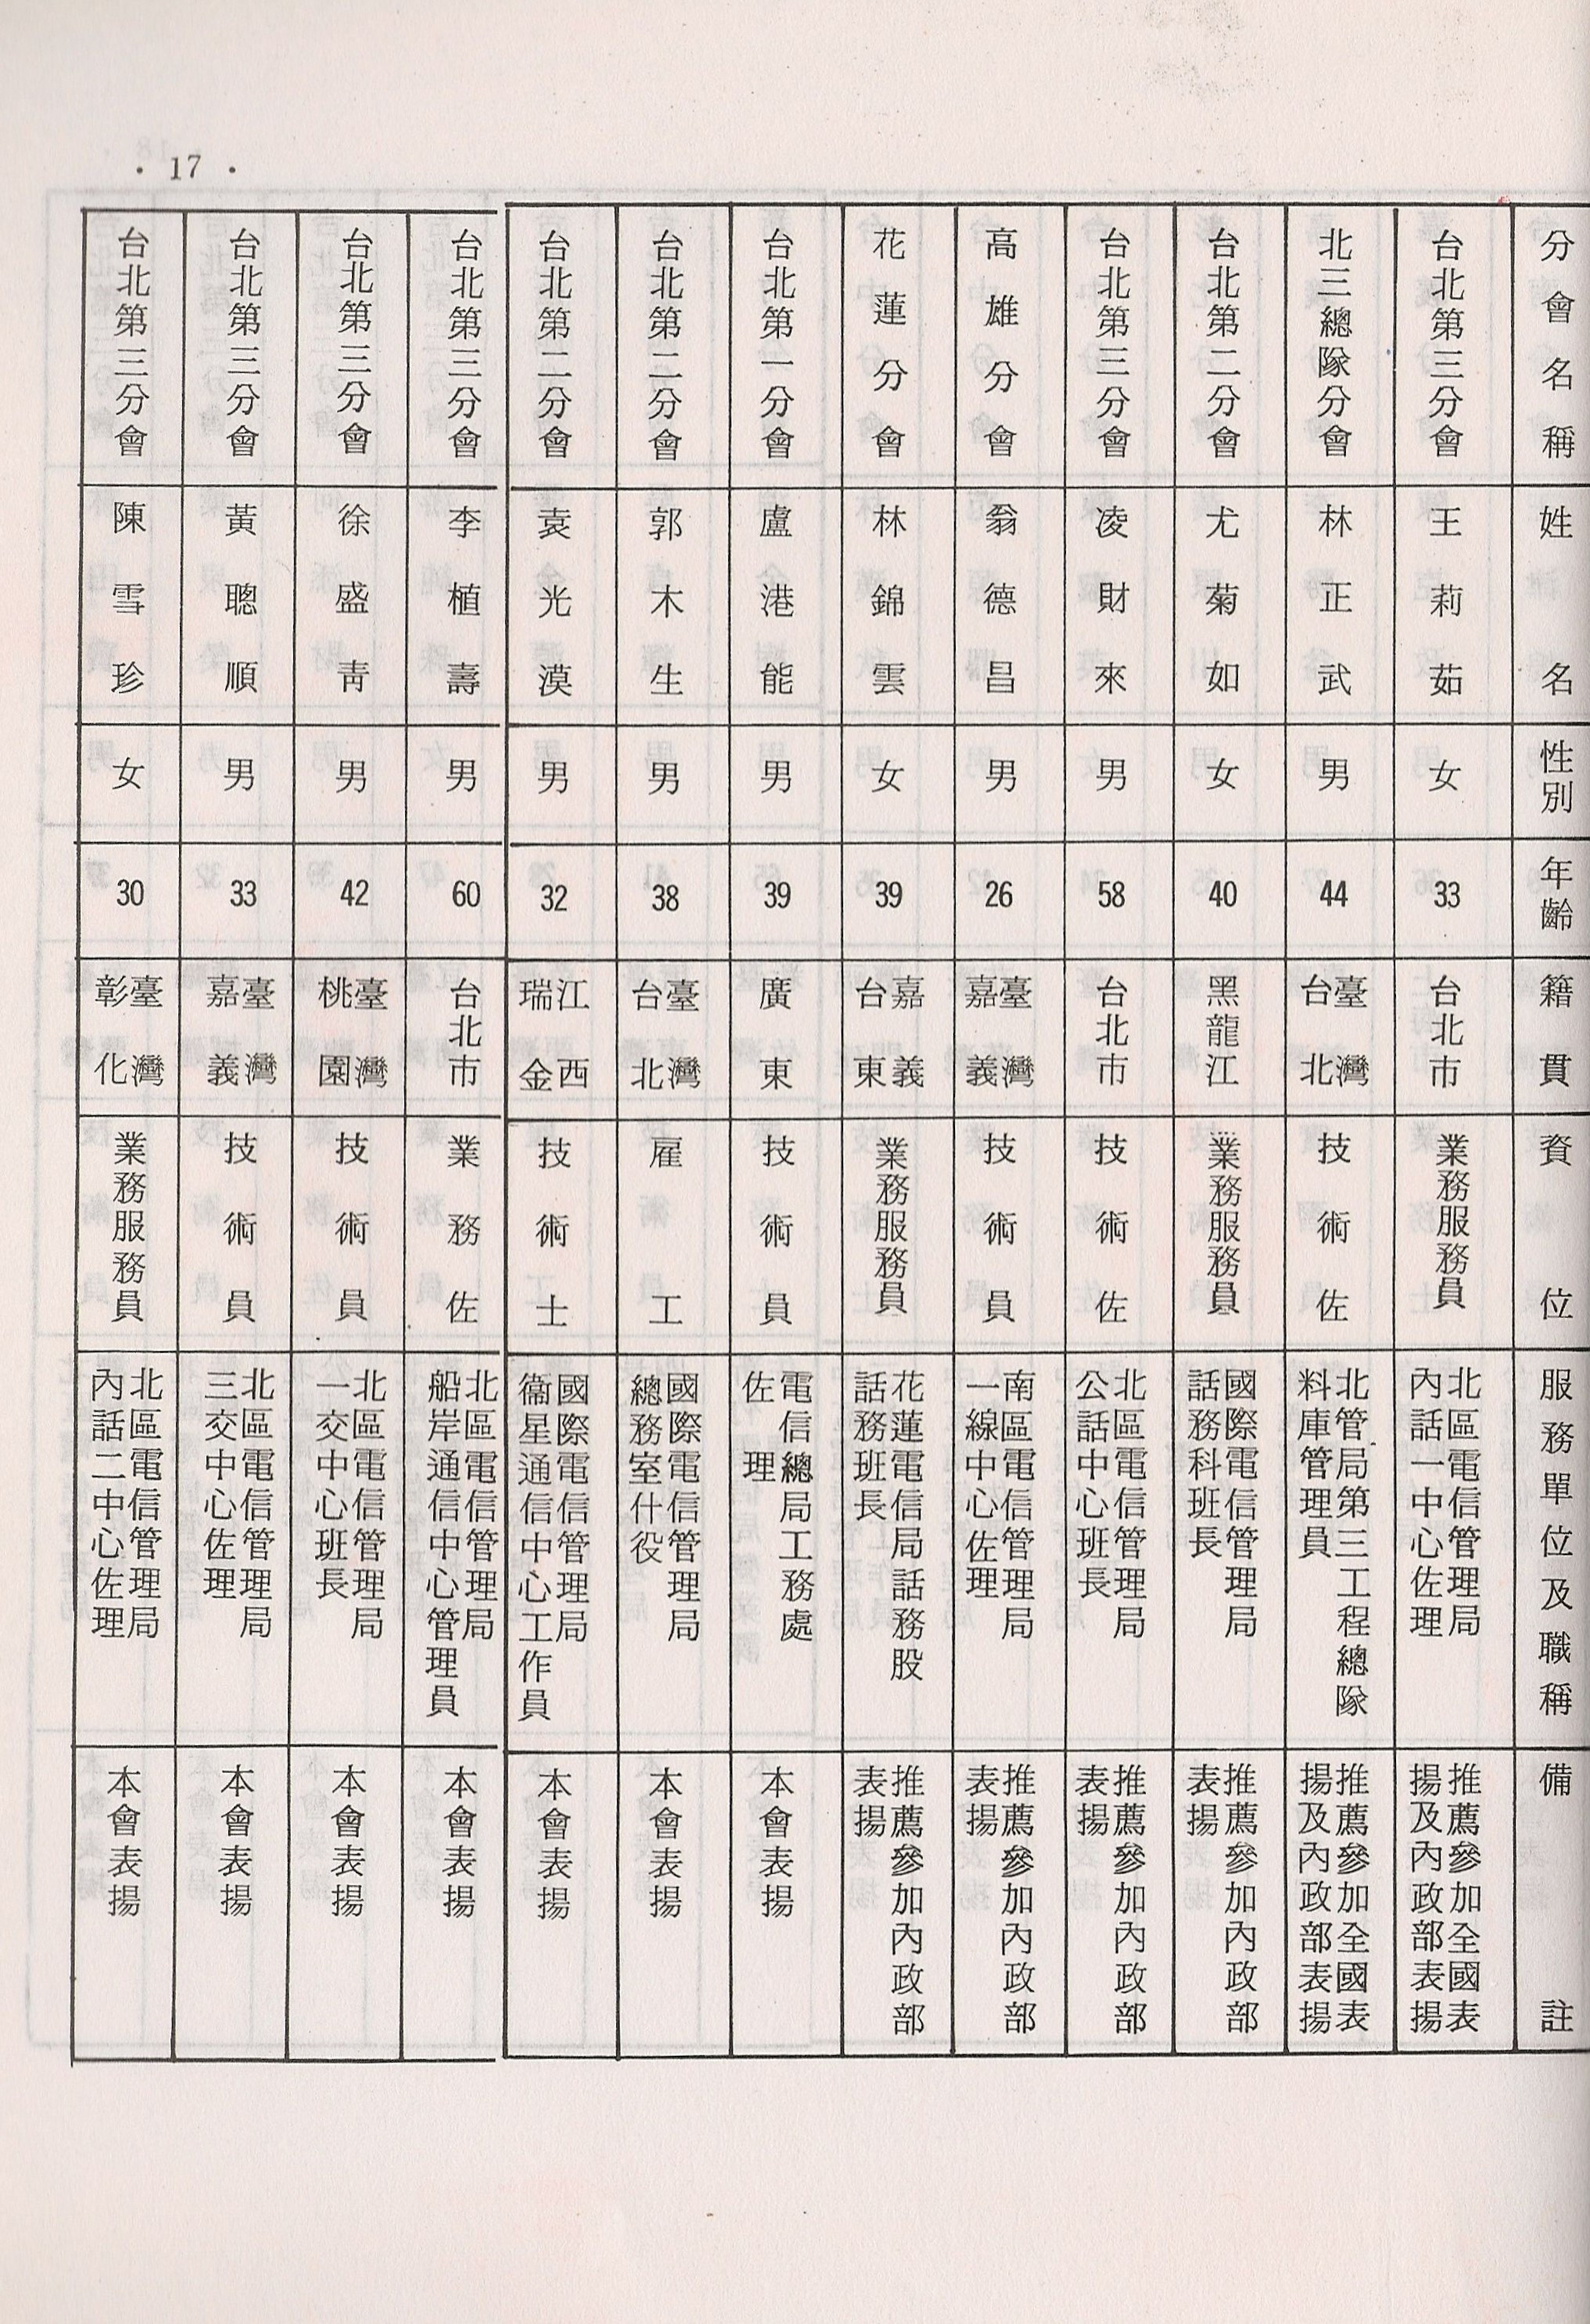 · 17 ·
分會名稱 姓名 性別 年齡 籍貫 資位 服務單位及職稱 備註
台北第三分會 王莉茹 女 33 台北市 業務服務員 北區電信管理局內話一中心佐理 推薦參加全國表揚及內政部表揚
北三總隊分會 林正武 男 44 臺灣台北 技術佐 北管局第三工程總隊料庫管理員 推薦參加全國表揚及內政部表揚
台北第二分會 尤菊如 女 40 黑龍江 業務服務員 國際電信管理局話務科班長 推薦參加內政部表揚
台北第三分會 凌財來 男 58 台北市 技術佐 北區電信管理局公話中心班長 推薦參加內政部表揚
高雄分會 翁德昌 男 26 臺灣嘉義 技術員 南區電信管理局一線中心佐理 推薦參加內政部表揚
花蓮分會 林錦雲 女 39 嘉義台東 業務服務員 花蓮電信局話務股話務班長 推薦參加內政部表揚
台北第一分會 盧港能 男 39 廣東 技術員 電信總局工務處佐理 本會表揚
台北第二分會 郭木生 男 38 臺灣台北 雇工 國際電信管理局總務室什役 本會表揚
台北第二分會 袁光漠 男 32 江西瑞金 技術士 國際電信管理局衞星通信中心工作員 本會表揚
台北第三分會 李植壽 男 60 台北市 業務佐 北區電信管理局船岸通信中心管理員 本會表揚
台北第三分會 徐盛靑 男 42 臺灣桃園 技術員 北區電信管理局一交中心班長 本會表揚
台北第三分會 黃聰順 男 33 臺灣嘉義 技術員 北區電信管理局三交中心佐理 本會表揚
台北第三分會 陳雪珍 女 30 臺灣彰化 業務服務員 北區電信管理局內話二中心佐理 本會表揚